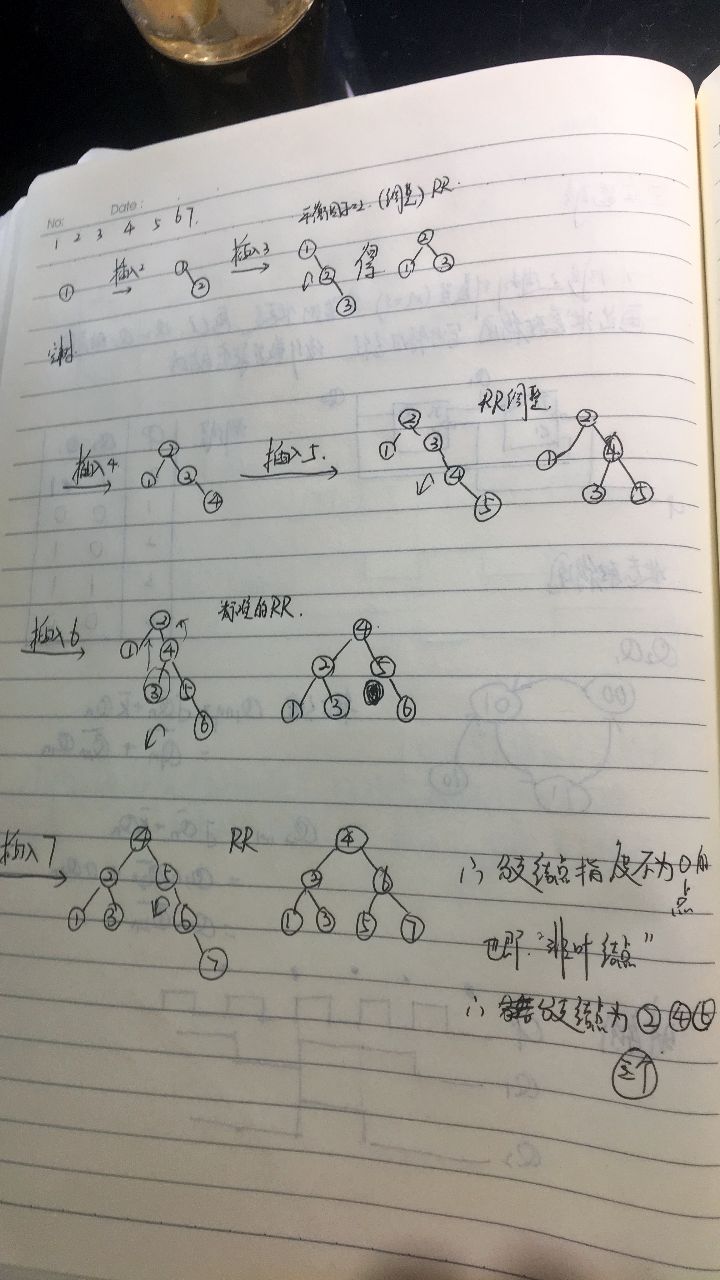 No:
Date:
1 2 3 4 5 6 7.
平衡因子=2. (调整) RR.
① 插入2 ① ② 插入3 ① ② ③ 得 ② ① ③
插入4 ② ① ③ ④ 插入5. ② ① ③ ④ ⑤ RR调整 ② ① ④ ③ ⑤
插入6 ② ① ④ ③ ⑤ ⑥ 标准的RR. ④ ② ⑤ ① ③ ⑥
插入7 ④ ② ⑤ ① ③ ⑥ ⑦ RR ④ ② ⑥ ① ③ ⑤ ⑦
∴ 分支结点指度不为0的
结点
也即"非叶结点"
∴ 分支结点为 ② ④ ⑥
三个